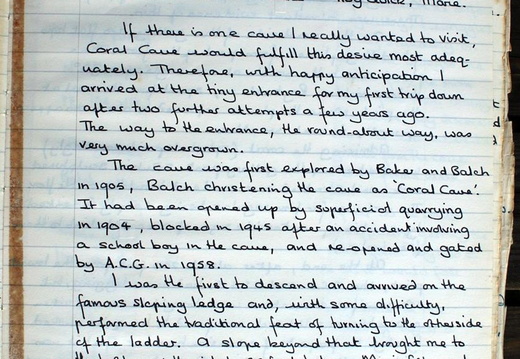 If there is one cave I really wanted to visit,
Coral Cave would fulfill this desire most adeq-
uately. Therefore, with happy anticipation I
arrived at the tiny entrance for my first trip down
after two further attempts a few years ago.
The way to the entrance, the round-about way, was
very much overgrown.
The cave was first explored by Baker and Balch
in 1905, Balch christening the cave as 'Coral Cave'.
It had been opened up by superficial quarrying
in 1904, blocked in 1945 after an accident involving
a school boy in the cave, and re-opened and gated
by A.C.G. in 1958.
I was the first to descend and arrived on the
famous sloping ledge and, with some difficulty,
performed the traditional feat of turning to the otherside
of the ladder. A slope beyond that brought me to